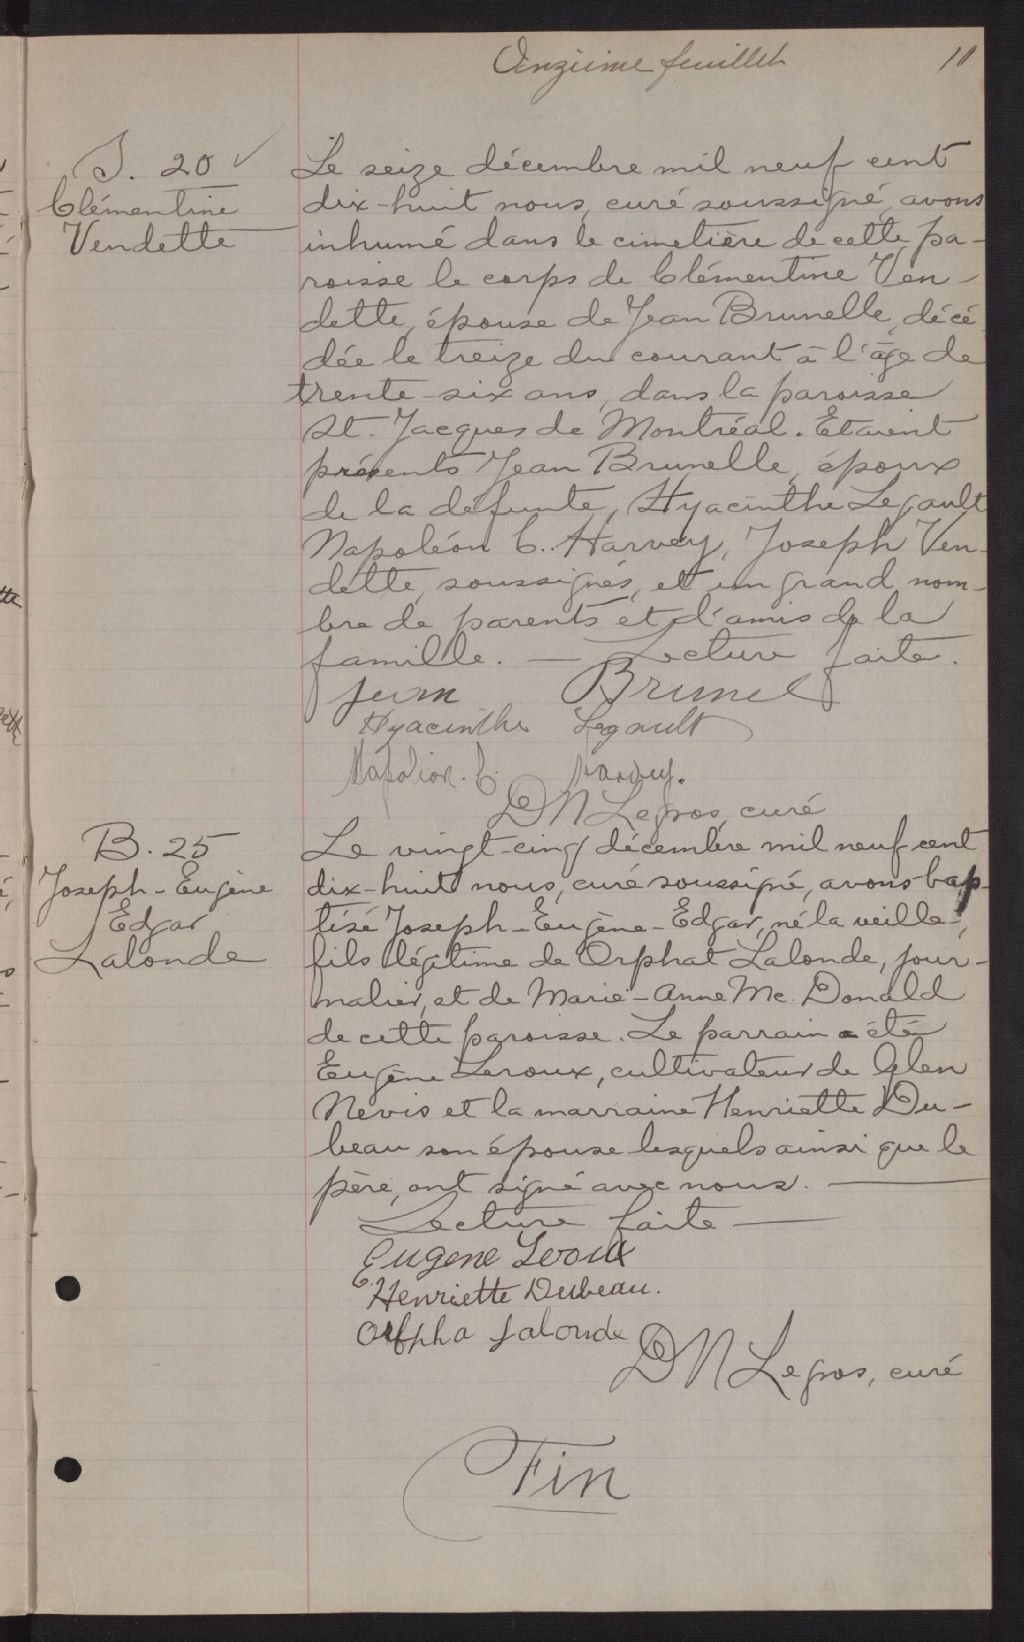 Onzième feuillet 11
S. 20 ✓
Clémentine
Vendette
Le seize décembre mil neuf cent
dix-huit nous, curé soussigné, avons
inhumé dans le cimetière de cette pa-
roisse le corps de Clémentine Ven-
dette, épouse de Jean Brunelle, décé-
dée le treize du courant à l'âge de
trente-six ans, dans la paroisse
St. Jacques de Montréal. Etaient
présents Jean Brunelle, époux
de la défunte, Hyacinthe Legault
Napoléon C. Harvey, Joseph Ven-
dette, soussignés, et un grand nom-
bre de parents et d'amis de la
famille. — Lecture faite.
Jean Brunel
Hyacinthe Legault
Napolion. C. Harvey.
DN Legros, curé
B. 25
Joseph-Eugène
Edgar
Lalonde
Le vingt-cinq décembre mil neuf cent
dix-huit nous, curé soussigné, avons bap-
tisé Joseph-Eugène-Edgar, né la veille,
fils légitime de Orphat Lalonde, jour-
nalier, et de Marie-Anne Mc. Donald
de cette paroisse. Le parrain a été
Eugène Leroux, cultivateur de Glen
Nevis et la marraine Henriette Du-
beau son épouse lesquels ainsi que le
père, ont signé avec nous. —
Lecture faite —
Eugene Leroux
Henriette Dubeau.
Orpha Lalonde
DN Legros, curé
Fin